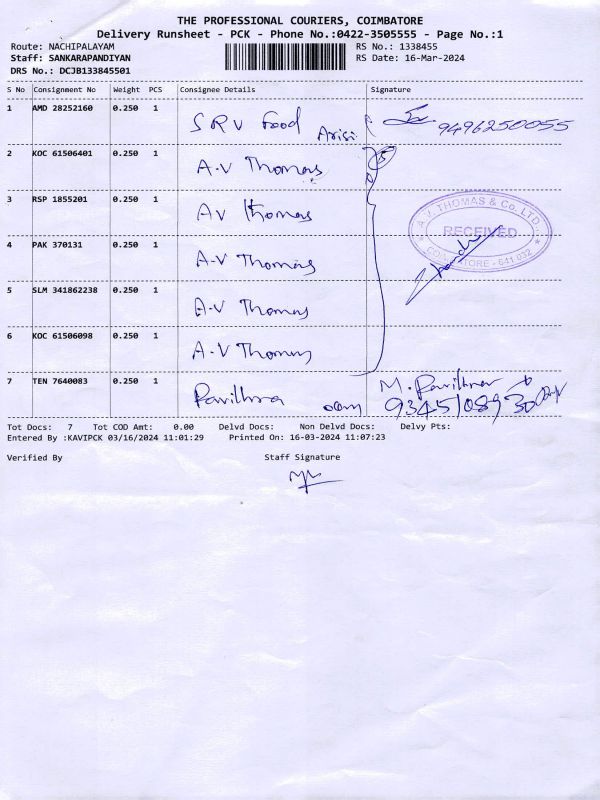 THE PROFESSIONAL COURIERS, COIMBATORE
Delivery Runsheet - PCK - Phone No.:0422-3505555 - Page No.:1
Route: NACHIPALAYAM RS No.: 1338455
Staff: SANKARAPANDIYAN RS Date: 16-Mar-2024
DRS No.: DCJB133845501
S No Consignment No Weight PCS Consignee Details Signature
1 AMD 28252160 0.250 1 SRV Food Arisi 9496250055
2 KOC 61506401 0.250 1 A.V Thomas
3 RSP 1855201 0.250 1 AV Thomas
A.V. THOMAS & Co. LTD.,
RECEIVED
COIMBATORE - 641 032
4 PAK 370131 0.250 1 A.V Thomas
5 SLM 341862238 0.250 1 A.V Thomas
6 KOC 61506098 0.250 1 A.V Thomas
7 TEN 7640083 0.250 1 Pavithra M. Pavithra
9345108930
Tot Docs: 7 Tot COD Amt: 0.00 Delvd Docs: Non Delvd Docs: Delvy Pts:
Entered By :KAVIPCK 03/16/2024 11:01:29 Printed On: 16-03-2024 11:07:23
Verified By Staff Signature